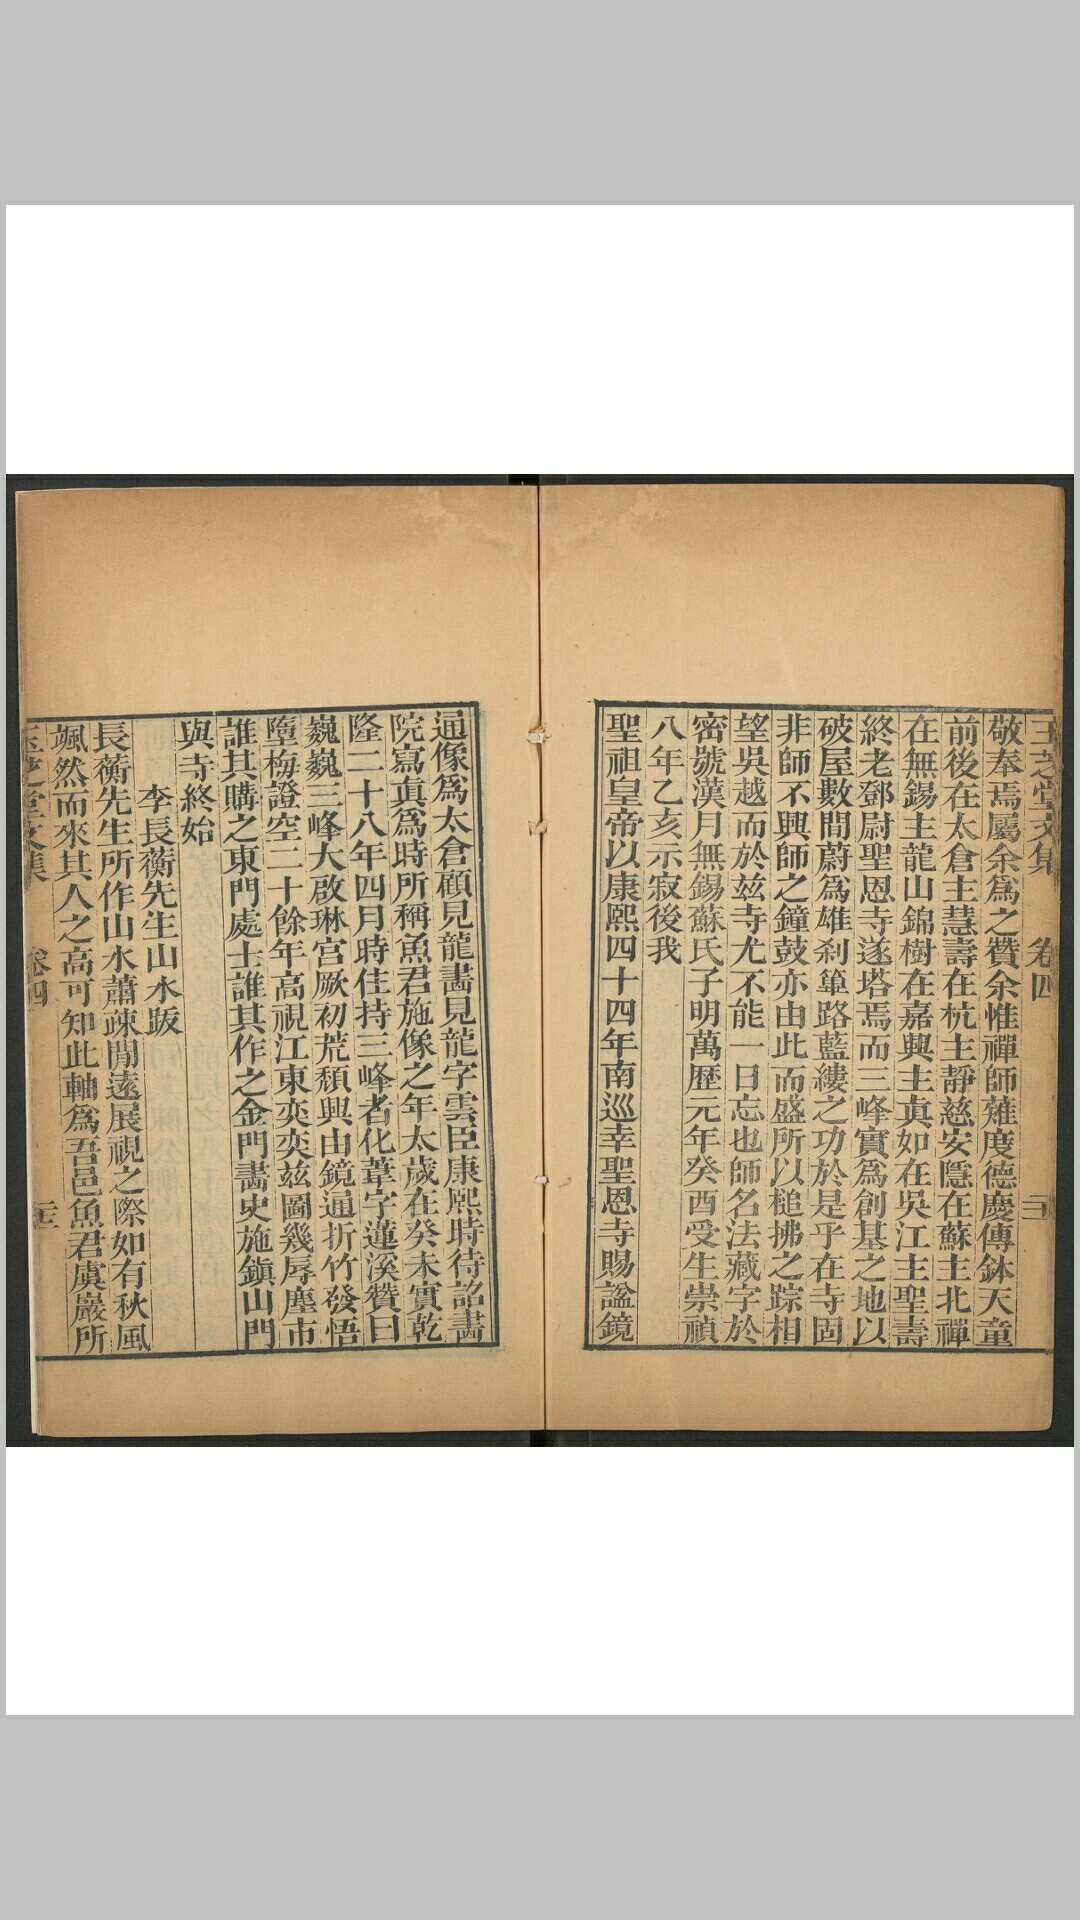 玉芝堂文集 卷四 三
敬奉焉屬余爲之贊余惟禪師薙度德慶傳鉢天童
前後在太倉主慧壽在杭主靜慈安隱在蘇主北禪
在無錫主龍山錦樹在嘉興主真如在吳江主聖壽
終老鄧尉聖恩寺遂塔焉而三峰實爲創基之地以
破屋數間蔚爲雄刹篳路藍縷之功於是乎在寺固
非師不興師之鐘鼓亦由此而盛所以槌拂之踪相
望吳越而於兹寺尤不能一日忘也師名法藏字於
密號漢月無錫蘇氏子明萬歷元年癸酉受生崇禎
八年乙亥示寂後我
聖祖皇帝以康熙四十四年南巡幸聖恩寺賜謚鏡
通像爲太倉顧見龍畵見龍字雲臣康熙時待詔畵
院寫真爲時所稱魚君施像之年太歲在癸未實乾
隆二十八年四月時住持三峰者化葦字蓮溪贊曰
巍巍三峰大啟琳宮厥初荒頹興由鏡通折竹發悟
墮梅證空二十餘年高視江東奕奕兹圖幾辱塵市
誰其購之東門處士誰其作之金門畵史施鎮山門
與寺終始
李長蘅先生山水跋
長蘅先生所作山水蕭疎閒遠展視之際如有秋風
颯然而來其人之高可知此軸爲吾邑魚君虞巖所
玉芝堂文集 卷四